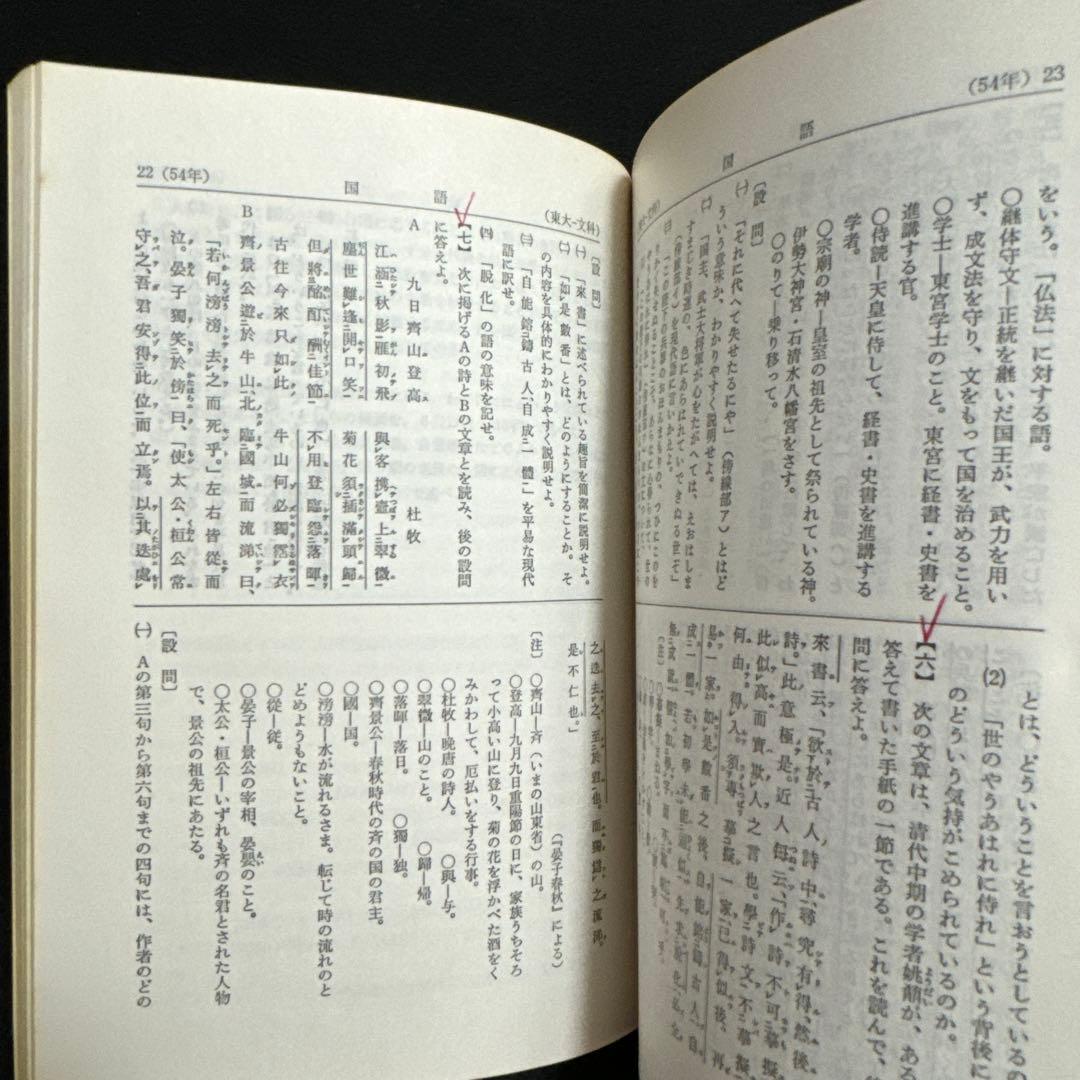 (54年) 23
国語
をいう。「仏法」に対する語。
○継体守文―正統を継いだ国王が、武力を用い
ず、成文法を守り、文をもって国を治めること。
○学士―東宮学士のこと。東宮に経書・史書を
進講する官。
○侍読―天皇に侍して、経書・史書を進講する
学者。
○宗廟の神―皇室の祖先として祭られている神。
伊勢大神宮・石清水八幡宮をさす。
○のりて―乗り移って。
〔設問〕
㈠「それに代へて失せたるにや」(傍線部ア)とはど
ういう意味か、わかりやすく説明せよ。
とは、どういうことを言おうとしているの
(2)「世のやうあはれに侍れ」という背後に
のどういう気持がこめられているのか。
【六】次の文章は、清代中期の学者姚鼐が、ある
答えて書いた手紙の一節である。これを読んで、
問に答えよ。
來書云、「欲於古人詩中尋究有得、然後
詩。」此意極是。近人每云、「作詩不可摹擬
此似高而實欺人之言也。學詩文不摹擬
何由得入。須專摹擬一家、已得似後、再
易一家。如是數番之後、自能鎔鑄古人、自
22(54年)
国語
(東大-文科)
〔設問〕
㈠「來書」に述べられている趣旨を簡潔に説明せよ。
㈡「如是數番」とは、どのようにすることか。そ
の内容を具体的にわかりやすく説明せよ。
㈢「自能鎔鑄古人、自成一體」を平易な現代
語に訳せ。
㈣「脱化」の語の意味を記せ。
【七】次に掲げるAの詩とBの文章とを読み、後の設問
に答えよ。
A 九日齊山登高 杜牧
江涵秋影雁初飛 與客攜壺上翠微
塵世難逢開口笑 菊花須插滿頭歸
但將酩酊酬佳節 不用登臨怨落暉
古往今來只如此 牛山何必獨霑衣
B 齊景公遊於牛山、北臨國城而流涕曰、
「若何滂滂去之而死乎。」左右皆從而
泣。晏子獨笑於傍曰、「使太公・桓公常
守之、吾君安得此位而立焉。以其迭處
之迭去之、至於君也。而獨爲之流涕、
是不仁也。」
(『晏子春秋』による)
〔注〕○齊山―斉(いまの山東省)の山。
○登高―九月九日重陽節の日に、家族うちそろ
って小高い山に登り、菊の花を浮かべた酒をく
みかわして、厄払いをする行事。
○杜牧―晩唐の詩人。 ○與―与。
○翠微―山のこと。 ○歸―帰。
○落暉―落日。 ○獨―独。
○齊景公―春秋時代の斉の国の君主。
○國―国。
○滂滂―水が流れるさま。転じて時の流れのと
どめようもないこと。
○從―従。
○晏子―景公の宰相、晏嬰のこと。
○太公・桓公―いずれも斉の名君とされた人物
で、景公の祖先にあたる。
〔設問〕
㈠ Aの第三句から第六句までの四句には、作者のどの